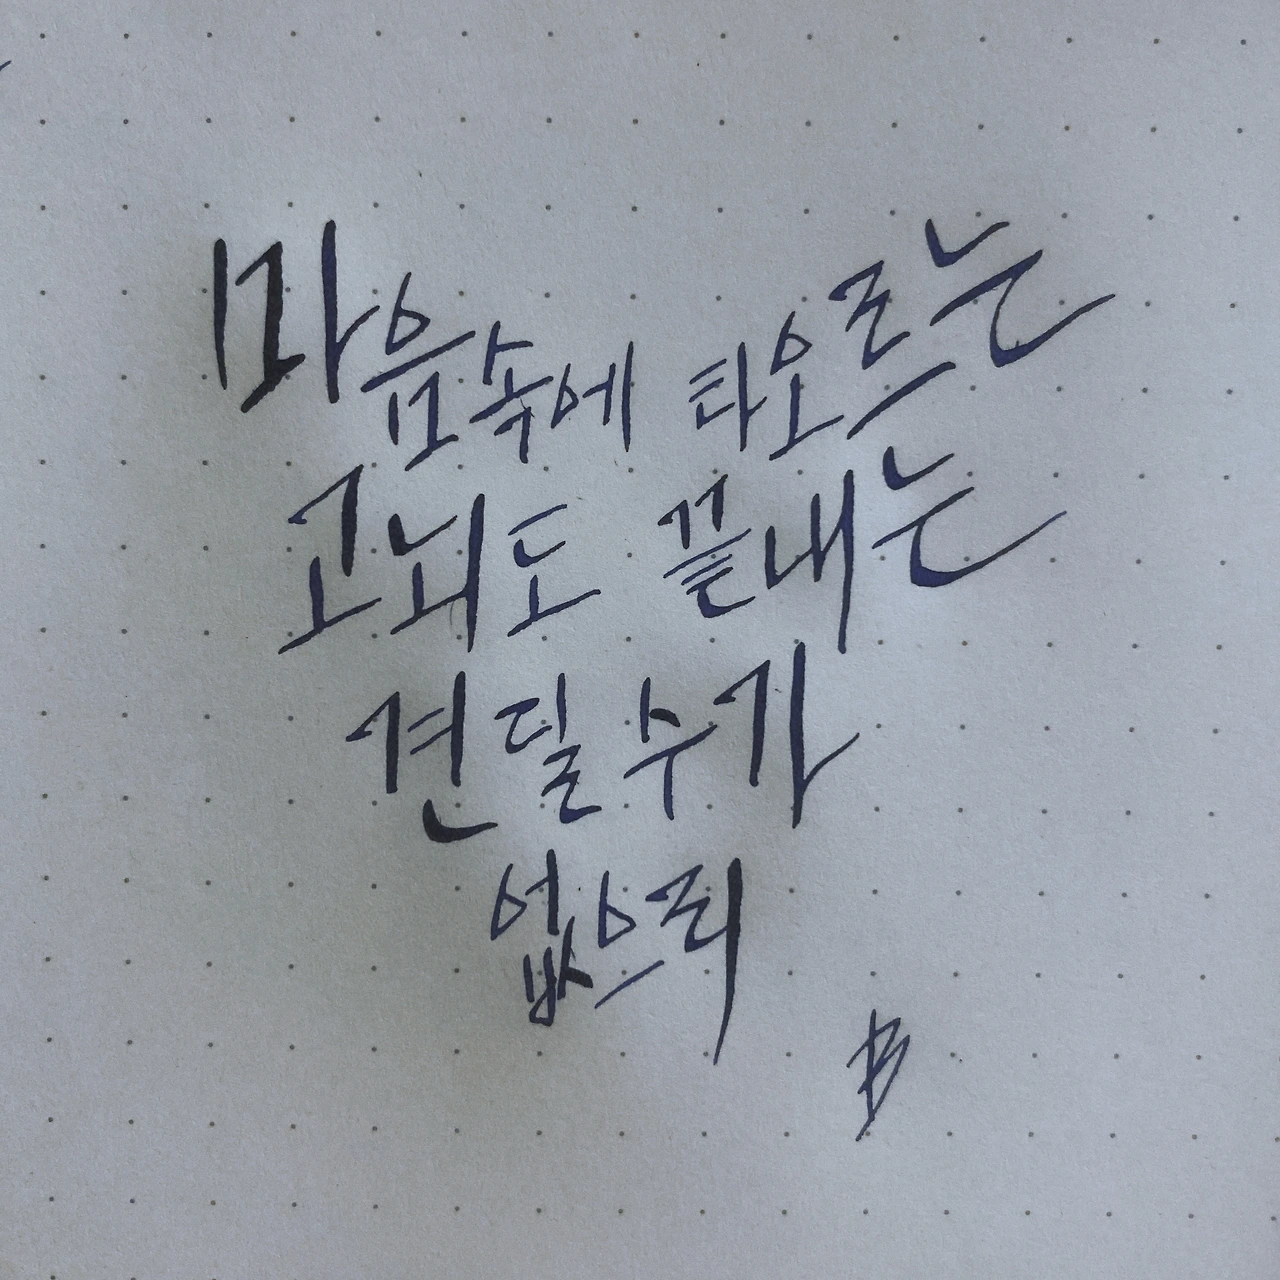 마음속에 타오르는
고뇌도 끝내는
견딜 수가
없으리
B